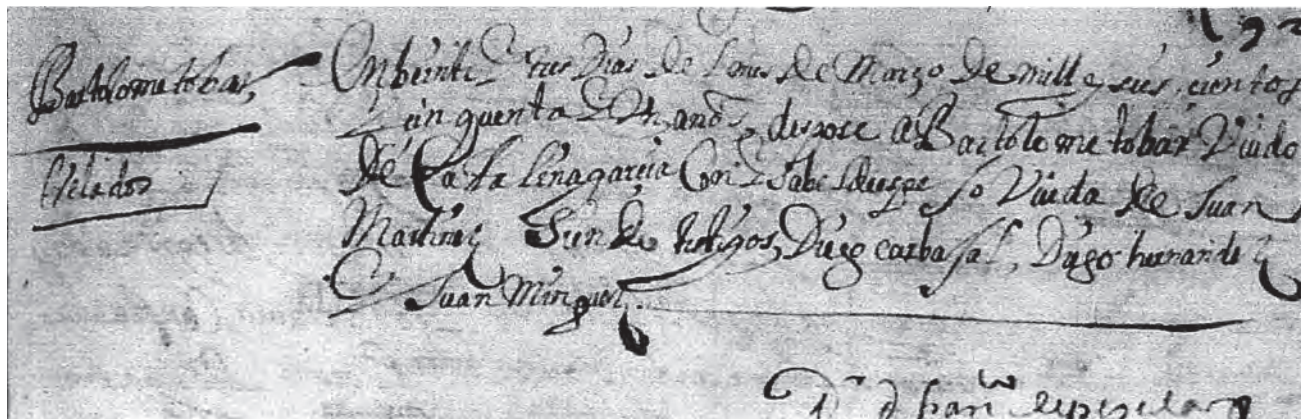 Bartolome tobar,
Velados
En beinti y tres Dias de l mes de Março de mill y seis cientos
y cinquenta y Un años, despose a Bartolome tobar Viudo
De Catalina garcia Con ysabel de Viuda de Juan
Martinez Siendo testigos, Diego carbajal, Diego hernandez
y Juan Minguez